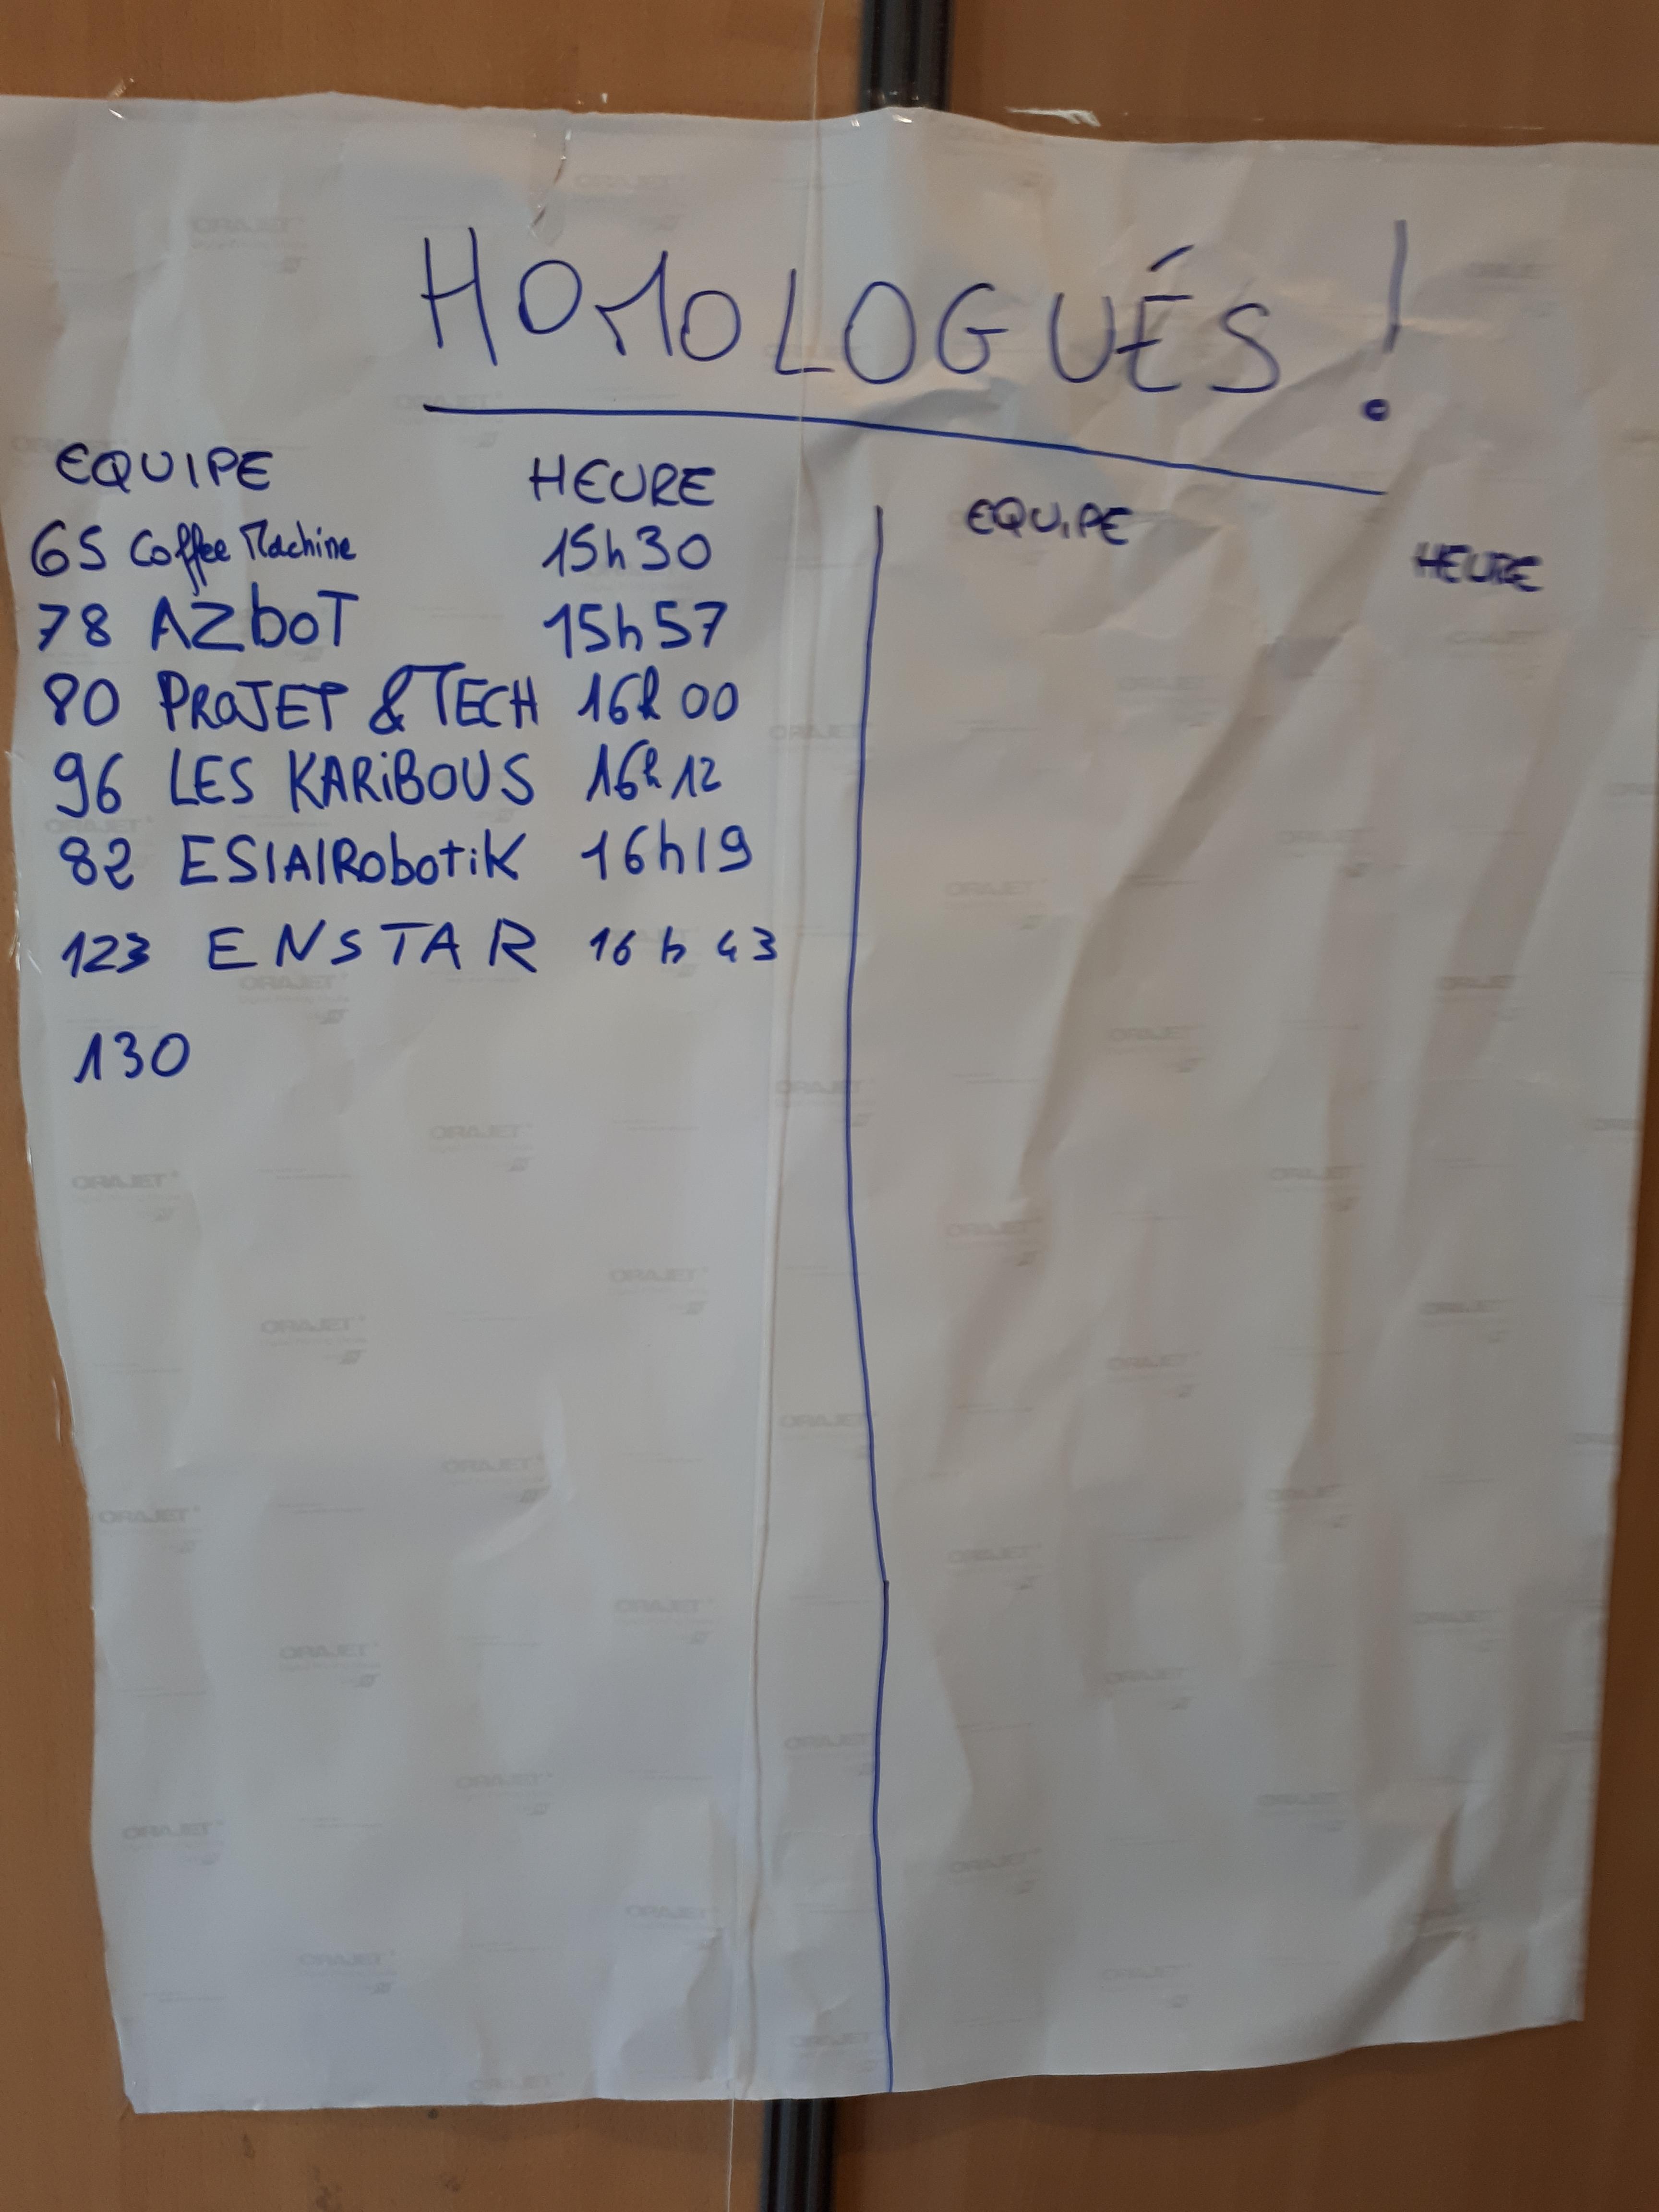 HOMOLOGUÉS !
EQUIPE HEURE
65 Coffee Machine 15h30
78 AZboT 15h57
80 PROJET & TECH 16h00
96 LES KARiBOUS 16h12
82 ESIAlRobotiK 16h19
123 ENSTAR 16h43
130
EQUIPE HEURE
ORAJET